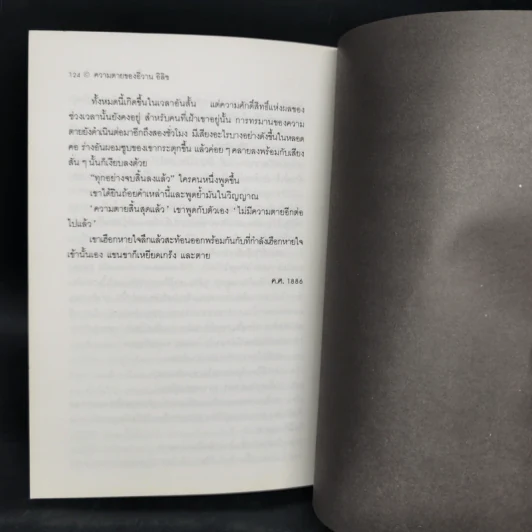 124 © ความตายของอีวาน อิลิช
ทั้งหมดนี้เกิดขึ้นในเวลาอันสั้น แต่ความศักดิ์สิทธิ์แห่งผลของ
ช่วงเวลานั้นยังคงอยู่ สำหรับคนที่เฝ้าเขาอยู่นั้น การทรมานของความ
ตายยังดำเนินต่อมาอีกถึงสองชั่วโมง มีเสียงอะไรบางอย่างดังขึ้นในหลอด
คอ ร่างอันผอมซูบของเขากระตุกขึ้น แล้วค่อย ๆ คลายลงพร้อมกับเสียง
สั้น ๆ นั้นก็เงียบลงด้วย
"ทุกอย่างจบสิ้นลงแล้ว" ใครคนหนึ่งพูดขึ้น
เขาได้ยินถ้อยคำเหล่านี้และพูดย้ำมันในวิญญาณ
'ความตายสิ้นสุดแล้ว' เขาพูดกับตัวเอง 'ไม่มีความตายอีกต่อ
ไปแล้ว'
เขาเฮือกหายใจลึกแล้วสะท้อนออกพร้อมกันกับที่กำลังเฮือกหายใจ
เข้านั้นเอง แขนขาก็เหยียดเกร็ง และตาย
ค.ศ. 1886